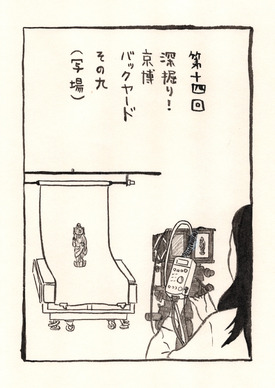 第十四回
深掘り！
京博
バックヤード
その九
（写場）